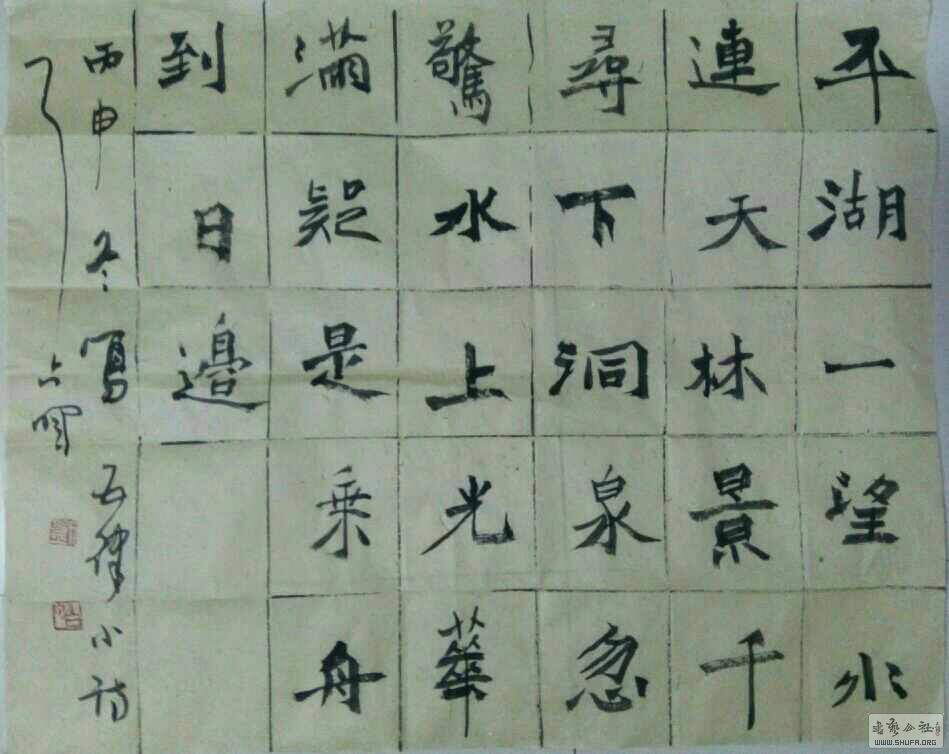 平湖一望水
連天林景千
尋下洞泉忽
驚水上光華
滿疑是乗舟
到日邊
丙申冬寫五律小詩
WWW.SHUFA.ORG